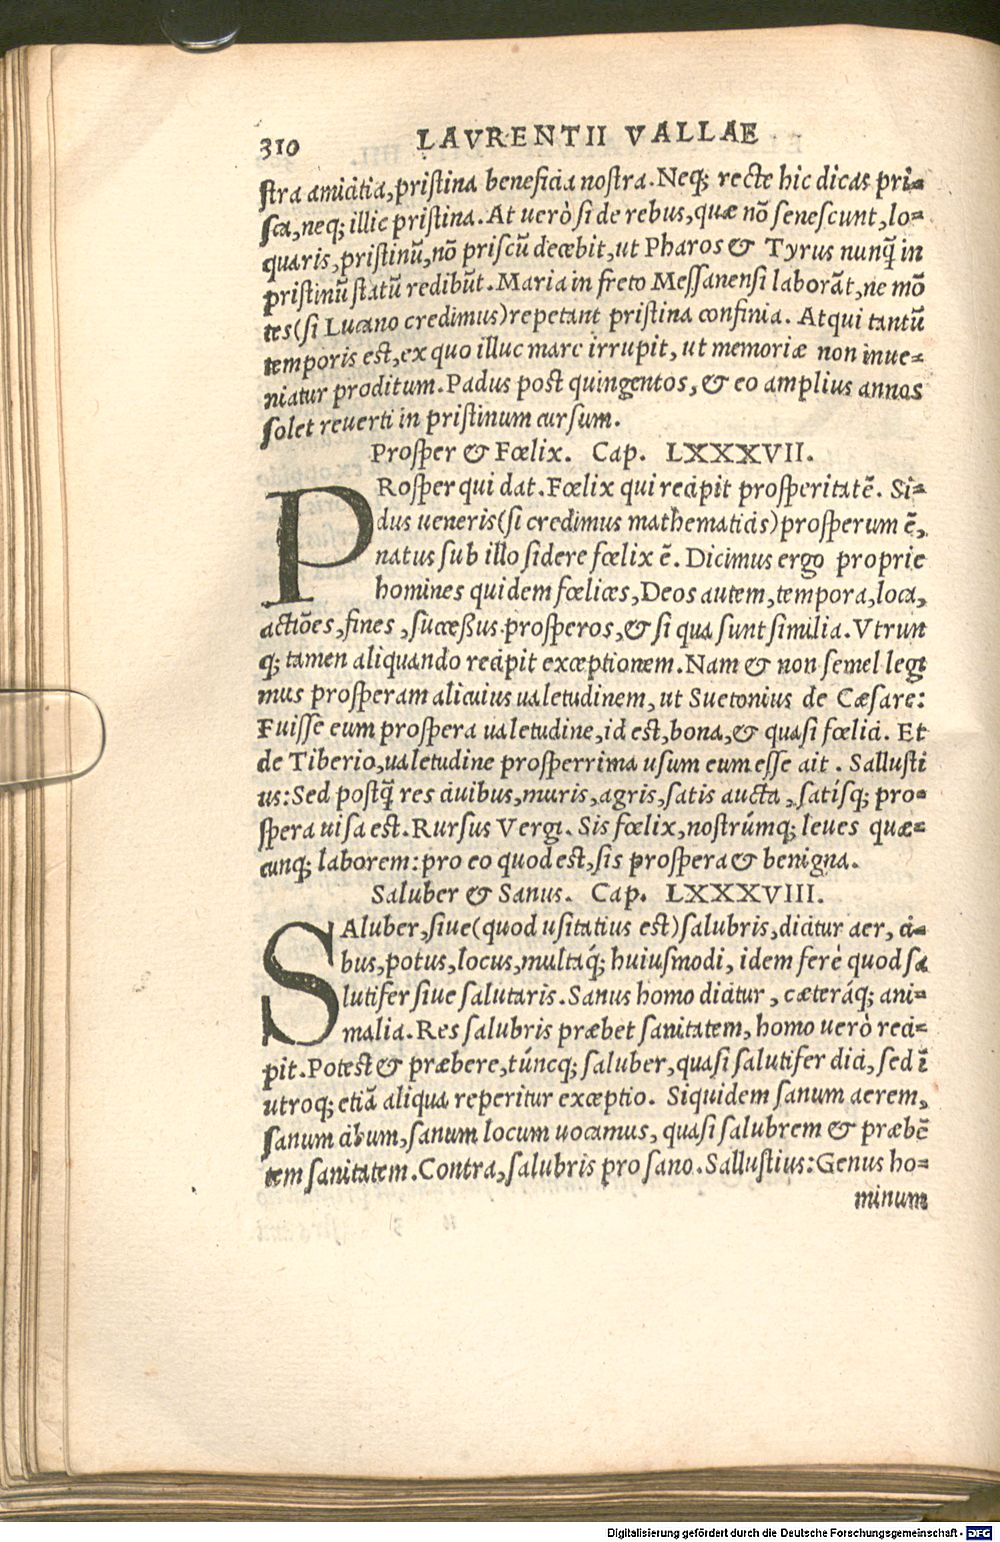 310 LAVRENTII VALLAE
ſtra amicitia, priſtina beneficia noſtra. Neq; recte hic dicas pri-
ſca, neq; illic priſtina. At uerò ſi de rebus, quæ nõ ſeneſcunt, lo-
quaris, priſtinũ, nõ priſcũ decebit, ut Pharos & Tyrus nunq̃ in
priſtinũ ſtatũ redibũt. Maria in freto Meſſanenſi laborãt, ne mõ
tes (ſi Lucano credimus) repetant priſtina confinia. Atqui tantũ
temporis eſt, ex quo illuc mare irrupit, ut memoriæ non inue-
niatur proditum. Padus poſt quingentos, & eo amplius annos
ſolet reuerti in priſtinum curſum.
Proſper & Fœlix. Cap. LXXXVII.
PRoſper qui dat. Fœlix qui recipit proſperitatẽ. Si-
dus ueneris (ſi credimus mathematicis) proſperum ẽ,
natus ſub illo ſidere fœlix ẽ. Dicimus ergo proprie
homines quidem fœlices, Deos autem, tempora, loca,
actiões, fines, ſucceßus proſperos, & ſi qua ſunt ſimilia. Vtrun
q; tamen aliquando recipit exceptionem. Nam & non ſemel legi
mus proſperam alicuius ualetudinem, ut Suetonius de Cæſare:
Fuiſſe eum proſpera ualetudine, id eſt, bona, & quaſi fœlici. Et
de Tiberio, ualetudine proſperrima uſum eum eſſe ait. Salluſti
us: Sed poſtq̃ res ciuibus, muris, agris, ſatis aucta, ſatísq; pro-
ſpera uiſa eſt. Rurſus Vergi. Sis fœlix, noſtrúmq; leues quæ-
cunq; laborem: pro eo quod eſt, ſis proſpera & benigna.
Saluber & Sanus. Cap. LXXXVIII.
SAluber, ſiue (quod uſitatius eſt) ſalubris, dicitur aer, ci-
bus, potus, locus, multaq́; huiuſmodi, idem ferè quod ſa
lutifer ſiue ſalutaris. Sanus homo dicitur, cæteráq; ani-
malia. Res ſalubris præbet ſanitatem, homo uerò reci-
pit. Poteſt & præbere, túncq; ſaluber, quaſi ſalutifer dici, ſed ĩ
utroq; etiã aliqua reperitur exceptio. Siquidem ſanum aerem,
ſanum cibum, ſanum locum uocamus, quaſi ſalubrem & præbẽ
tem ſanitatem. Contra, ſalubris pro ſano. Salluſtius: Genus ho-
minum
Digitalisierung gefördert durch die Deutsche Forschungsgemeinschaft - DFG